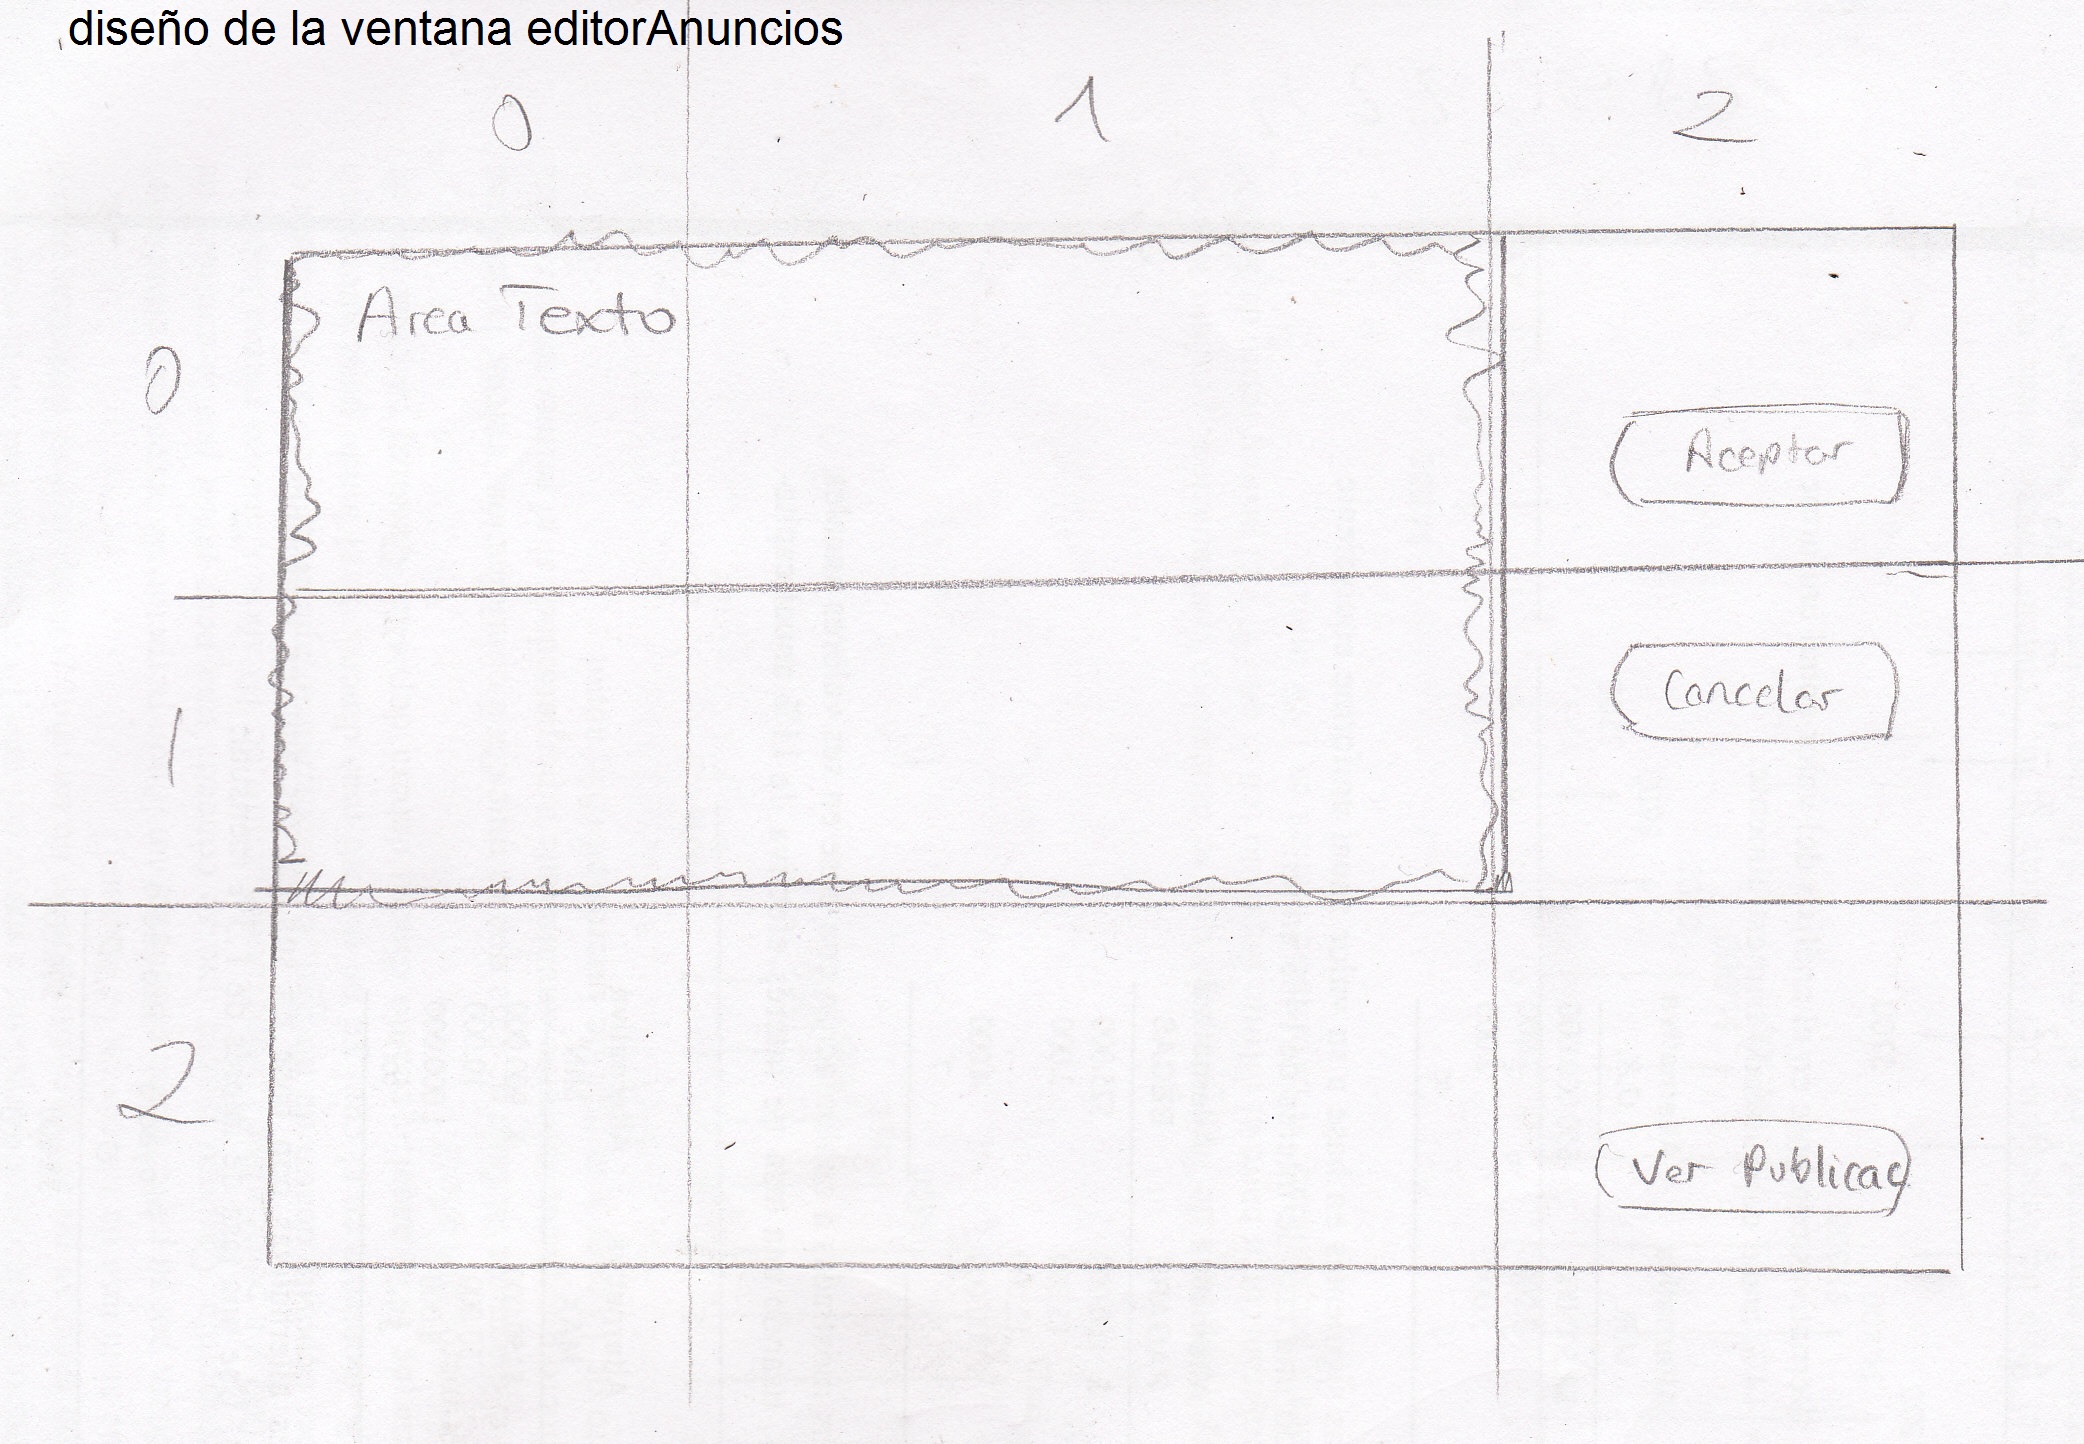 diseño de la ventana editorAnuncios
0 1 2
Area Texto
0
Aceptar
Cancelar
1
2
Ver Publicac